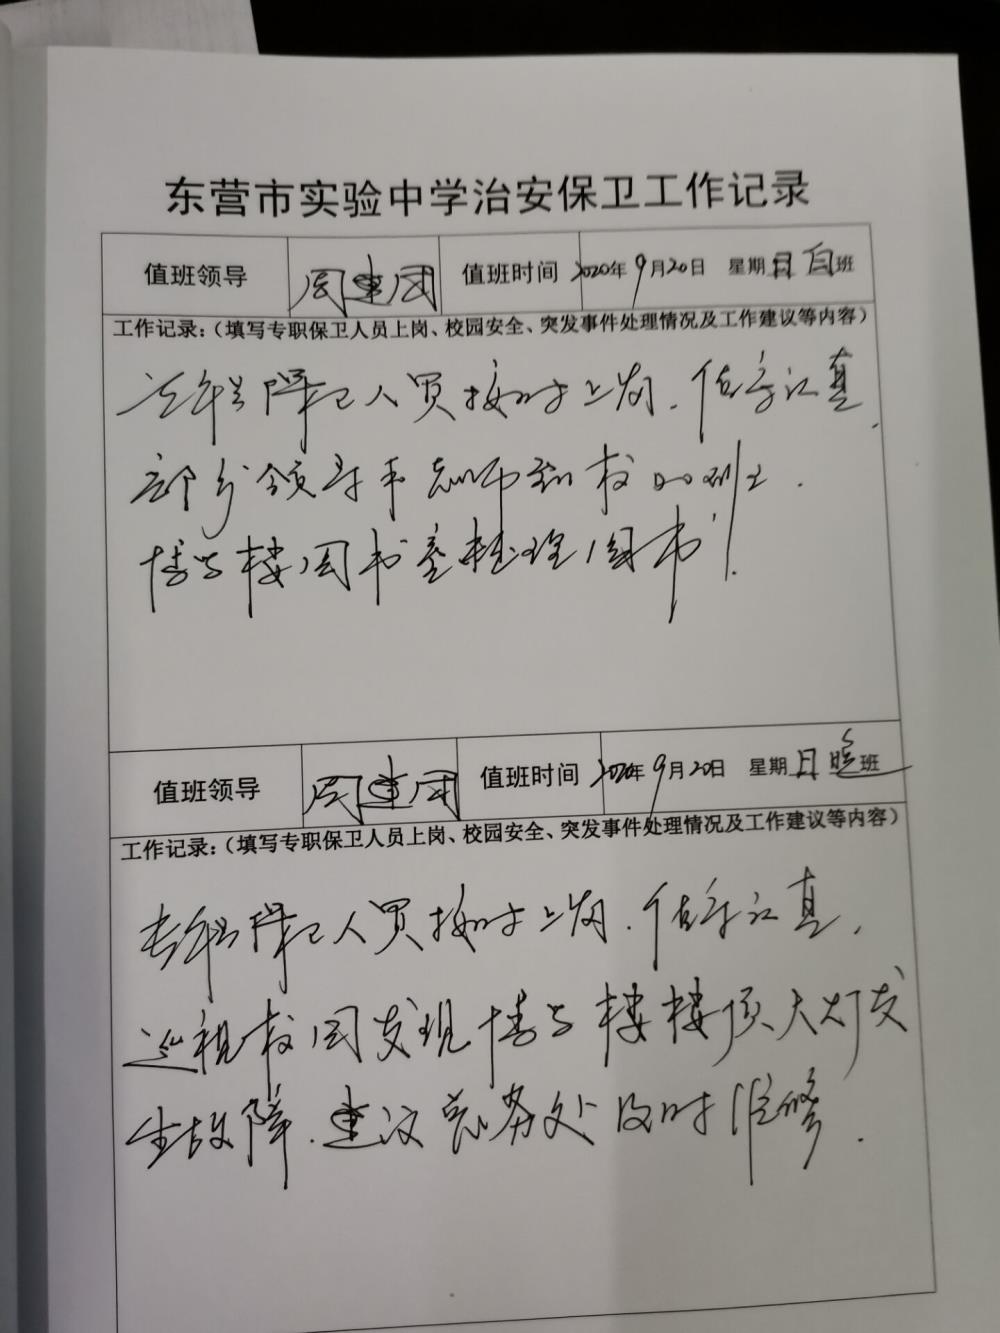 东营市实验中学治安保卫工作记录
值班领导 周建国 值班时间 2020年9月20日 星期日 白班
工作记录：（填写专职保卫人员上岗、校园安全、突发事件处理情况及工作建议等内容）
人员按时上岗，值守认真，
部分领导
博学楼图书室整理图书。
值班领导 周建国 值班时间 2020年9月20日 星期日 晚班
工作记录：（填写专职保卫人员上岗、校园安全、突发事件处理情况及工作建议等内容）
人员按时上岗，值守认真，
巡视校园发现博学楼楼顶大灯发
生故障，建议总务处及时维修。